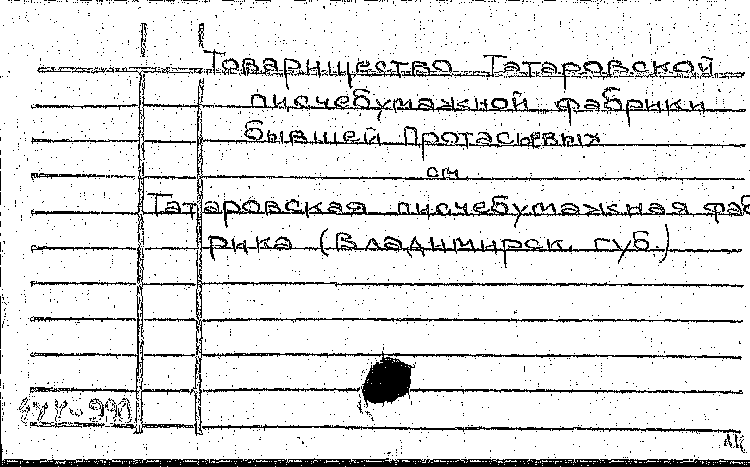 Товарищество Татаровской
писчебумажной фабрики
бывшей Протасьевых
см.
Татаровская писчебумажная фаб
рика (Владимирск. губ.)
АК